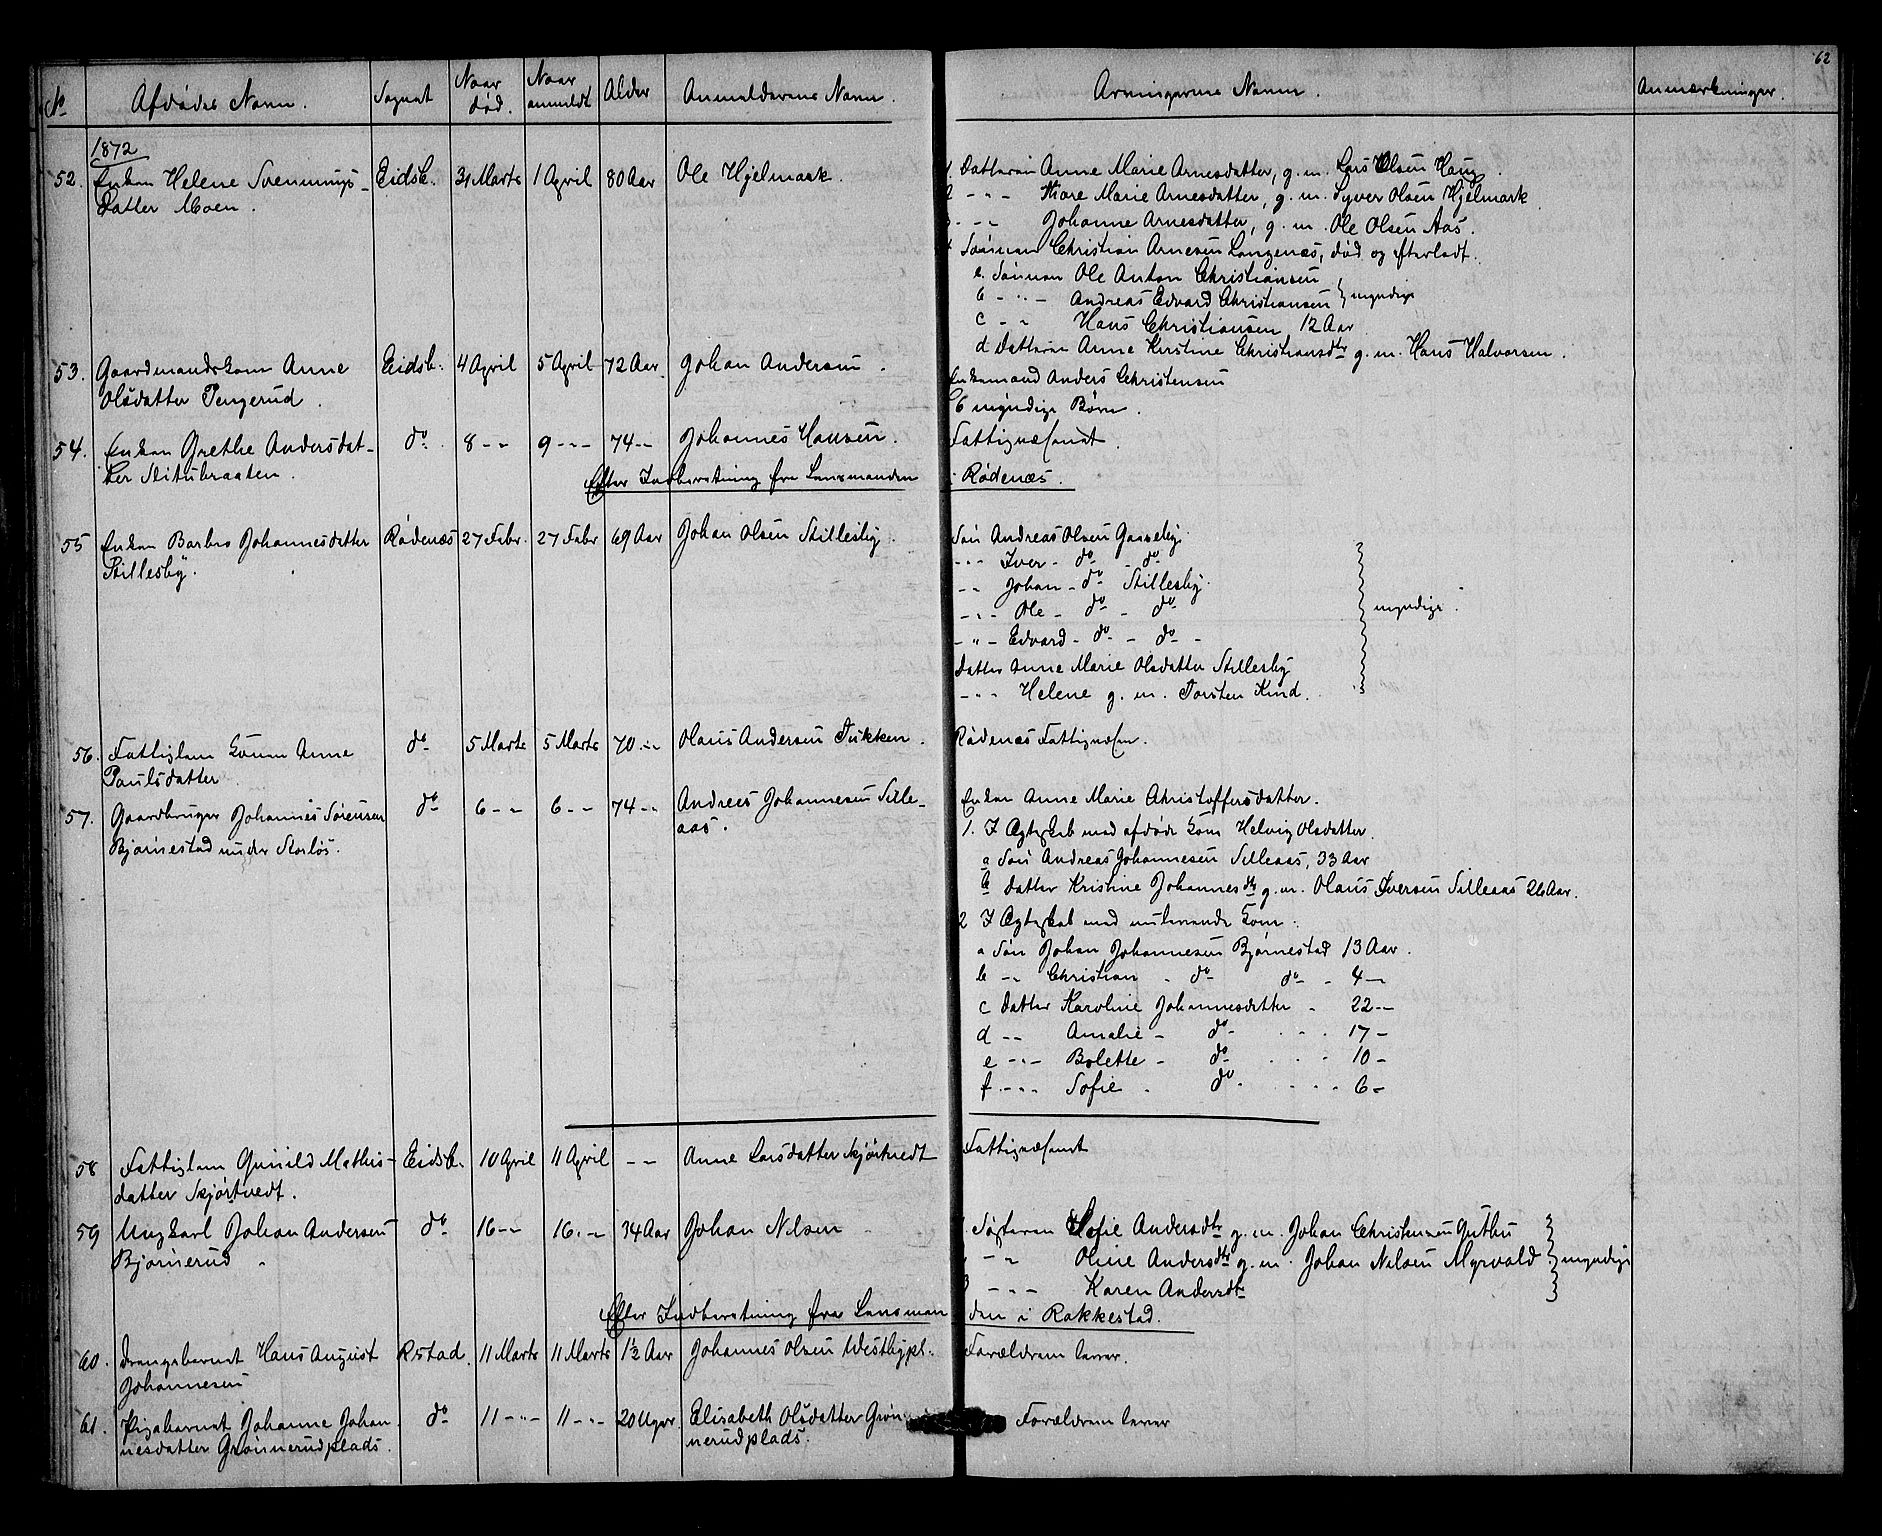 62
No Afdødes Navn. Sognet Naar død. Naar anmeldt Alder Anmelderens Navn. Arvingernes Navn. Anmærkninger.
1872
52. Enken Helene Svennings- Eidsb. 31 Marts 1 April 80 Aar Ole Hjelmark.
datter Moen.
1. Datteren Anne Marie Arnesdatter, g. m. Lars Olsen Haug.
2 - " - Kare Marie Arnesdatter, g. m. Syver Olsen Hjelmark
3 - " - Johanne Arnesdatter, g. m. Ole Olsen Aas.
4 Sønnen Christian Arnesen Langenæs, død og efterladt.
a. Sønnen Ole Anton Christiansen
b - " - Andreas Edvard Christiansen } myndige
c - " Hans Christiansen, 12 Aar
d Datteren Anne Kirstine Christiansdtr g. m. Hans Halvorsen.
53. Gaardmandskone Anne Eidsb. 4 April 5 April 72 Aar. Johan Andersen.
Olsdatter Tengerud.
Enkemand Anders Christensen
6 myndige Børn.
54. Enken Grethe Andersdat- do 8 - " 9 - " - 74 - " Johannes Hansen. Fattigvæsenet.
ter Stitubraaten.
Efter Indberetning fra Lensmanden i Rødenæs.
55 Enken Barbro Johannesdatter Rødenæs 27 Febr. 27 Febr 69 Aar Johan Olsen Stillesby.
Stillesby.
Søn Andreas Olsen Gaaseby.
- " - Iver - do - do
- " Johan - do Stillesby.
- " - Ole - do - do
- " - Edvard - do - do - } myndige.
Datter Anne Marie Olsdatter Stillesby
- " - Helene g. m. Torsten Kind.
56. Fattiglem Konen Anne do 5 Marts 5 Marts 70 - " Olaus Andersen Tukken. Rødenæs Fattigvæsen.
Paulsdatter
57. Gaardbruger Johannes Sørensen do 6 - " 6 - " 74 - " Andreas Johannesen Sille-
Bjørnestad under Storløs. aas.
Enken Anne Marie Christoffersdatter.
1. I Ægteskab med afdøde Kone Helvig Olsdatter.
a Søn Andreas Johannesen Silleaas, 33 Aar
b Datter Kristine Johannesdtr g. m. Olaus Iversen Silleaas 26 Aar.
2 I Ægteskab med nulevende Kone.
a Søn Johan Johannesen Bjørnestad 13 Aar.
b - " Christian - do do - 4 -
c Datter Karoline Johannesdatter - 22 -
d - " Amalie - do - 17 -
e - " - Bolette - do 10 -
f - " - Sofie - do 6 -
58 Fattiglem Gunild Mathis- Eidsb. 10 April 11 April - " Anne Larsdatter Skjørtvedt Fattigvæsenet
datter Skjørtvedt.
59 Ungkarl Johan Andersen do 16 - " 16. - " 34 Aar Johan Nilsen
Bjørnerud
1 Søsteren Sofie Andersdtr g. m. Johan Christensen Guthu
- " Oline Andersdtr g. m. Johan Nilsen Myrvold } myndige
3 - " - Karen Andersdtr
Efter Indberetning fra Lensmanden i Rakkestad.
60. Drengebarnet Hans August Rstad. 11 Marts 11 Marts 1½ Aar Johannes Olsen Westbypl. Forældrene lever.
Johannesen
61. Pigebarnet Johanne Johan- do 11 - " - 11 - " - 20 Uger. Elisabeth Olsdatter Grøn- Forældrene lever
nesdatter Grønnerudplads. nerudplads.